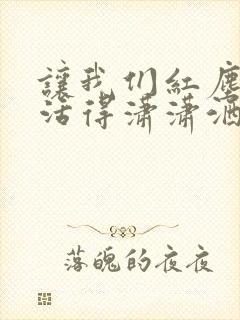 讓我们紅塵
活得瀟瀟洒
落魄的夜夜